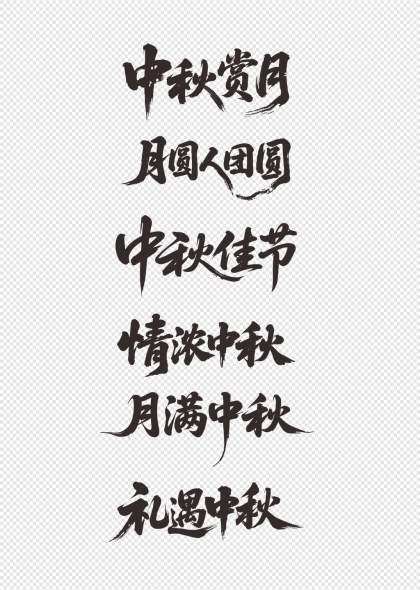 中秋赏月
月圆人团圆
中秋佳节
情浓中秋
月满中秋
礼遇中秋